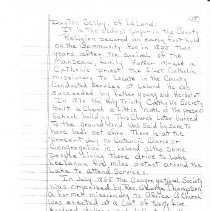 Dayton Selby, of Leland.
It is the oldest
Religion secured an early foothold
on the Community for in 1855 two
years after the arrival of the
Manseau, family Father Mrack a
Catholic priest the first Catholic
missionary to locate in the County
Conducted Services at Leland. He was
succeeded by Father
In 1870 the Holy Trinity Catholic Society
built a Church a little north of the present
School building. This Church later burned
to the ground and was said by some to
have been set afire. There is at the
present day no Catholic Church or
Congregation in Leland altho some
people living there drive to Lake
Leelanau four miles distant around the
Lake to attend Services.
In July 1865 the Congregational Society
was organized by Rev. George Thompson
a former missionary to Africa. A Church
was erected at a Cost of forty five
hundred dollars and